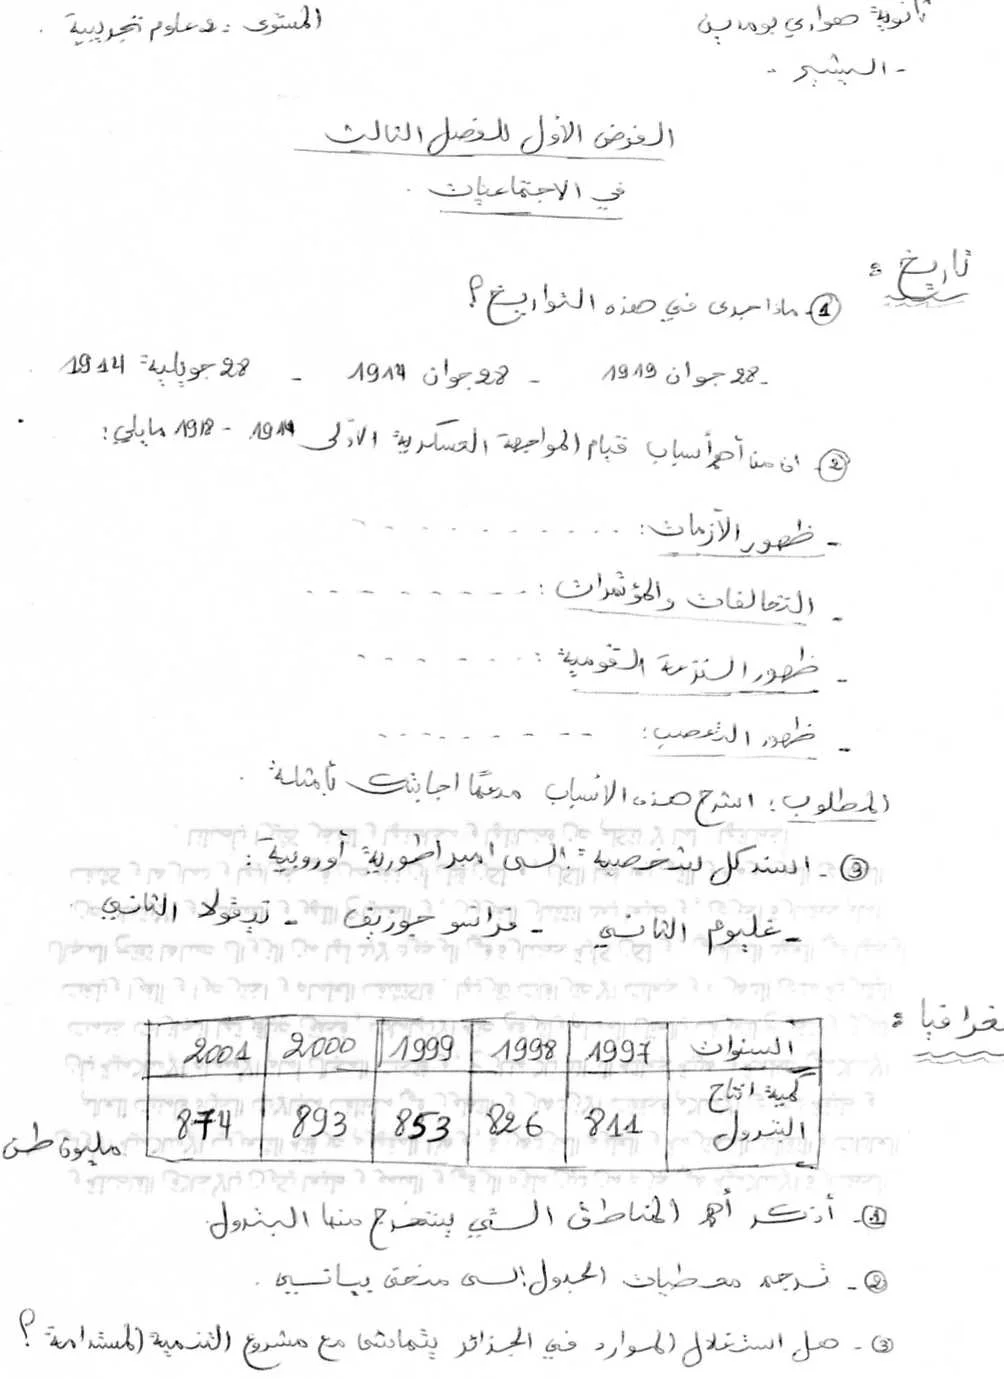 ثانوية هواري بومدين المستوى: 2 علوم تجريبية.
- البشير -
الفرض الأول للفصل الثالث
في الاجتماعيات.
تاريخ:
1- ماذا جرى في هذه التواريخ؟
- 28 جوان 1919 - 28 جوان 1914 - 28 جويلية 1914
2 ان من أهم أسباب قيام المواجهة العسكرية الأولى 1914 - 1918 مايلي:
- ظهور الأزمات: - - - - - - - - - -
- التحالفات والمؤتمرات: - - - - - - - - -
- ظهور النزعة القومية: - - - - - - -
- ظهور التعصب: - - - - - - - - -
المطلوب: اشرح هذه الأسباب مدعما اجابتك بأمثلة.
3- اسند كل شخصية الى امبراطورية أوروبية:
- غليوم الثاني - فرانسو جوزيف - نيقولا الثاني.
جغرافيا:
السنوات 1997 1998 1999 2000 2001
كمية انتاج البترول 811 826 853 893 874 مليون طن
1- أذكر أهم المناطق التي يستخرج منها البترول.
2- ترجم معطيات الجدول الى منحنى بياني.
3- هل استغلال الموارد في الجزائر يتماشى مع مشروع التنمية المستدامة؟